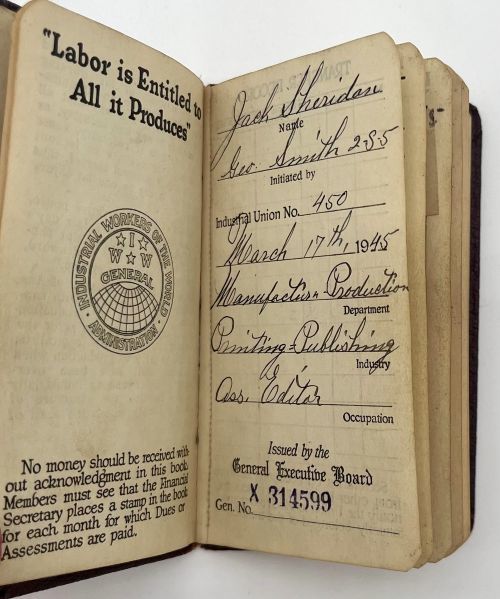 "Labor is Entitled to
All it Produces"
INDUSTRIAL WORKERS OF THE WORLD
I
W W
GENERAL
ADMINISTRATION
No money should be received with-
out acknowledgment in this book.
Members must see that the Financial
Secretary places a stamp in the book
for each month for which Dues or
Assessments are paid.
Jack Sheridan
Name
Geo. Smith 2-S-5
Initiated by
Industrial Union No. 450
March 17th, 1945
Manufactur- Production
Department
Printing-Publishing
Industry
Ass. Editor
Occupation
Issued by the
General Executive Board
Gen. No. X 314599